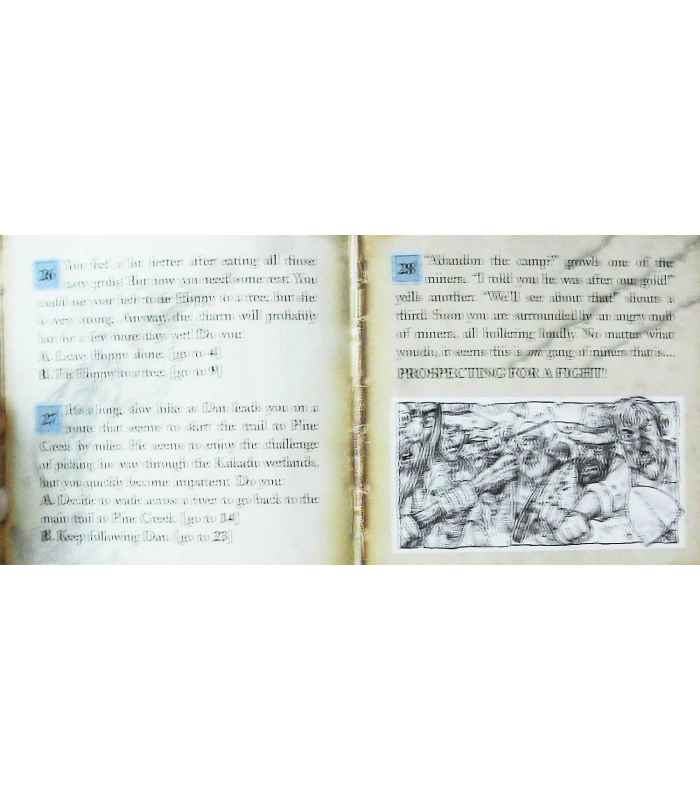 26 You feel a lot better after eating all those
But now you need some rest. You
could tie your
is very strong. Anyway, the charm will probably
last for a few more days yet! Do you:
A. Leave Hoppy alone. [go to 4]
B. Tie Hoppy to a tree. [go to 9]
27 It's a long, slow hike as Dan leads you on a
route that seems to skirt the trail to Pine
Creek by miles. He seems to enjoy the challenge
of picking his way through the wetlands,
but you quickly become impatient. Do you:
A. Decide to wade across a river to go back to the
main trail to Pine Creek. [go to 14]
B. Keep following Dan. [go to 23]
28 "Abandon the camp?" growls one of the
miners. "I told you he was after our gold!"
yells another. "We'll see about that" shouts a
third. Soon you are surrounded by an angry mob
of miners, all hollering loudly. No matter what
you do, it seems this is one gang of miners that is...
PROSPECTING FOR A FIGHT!